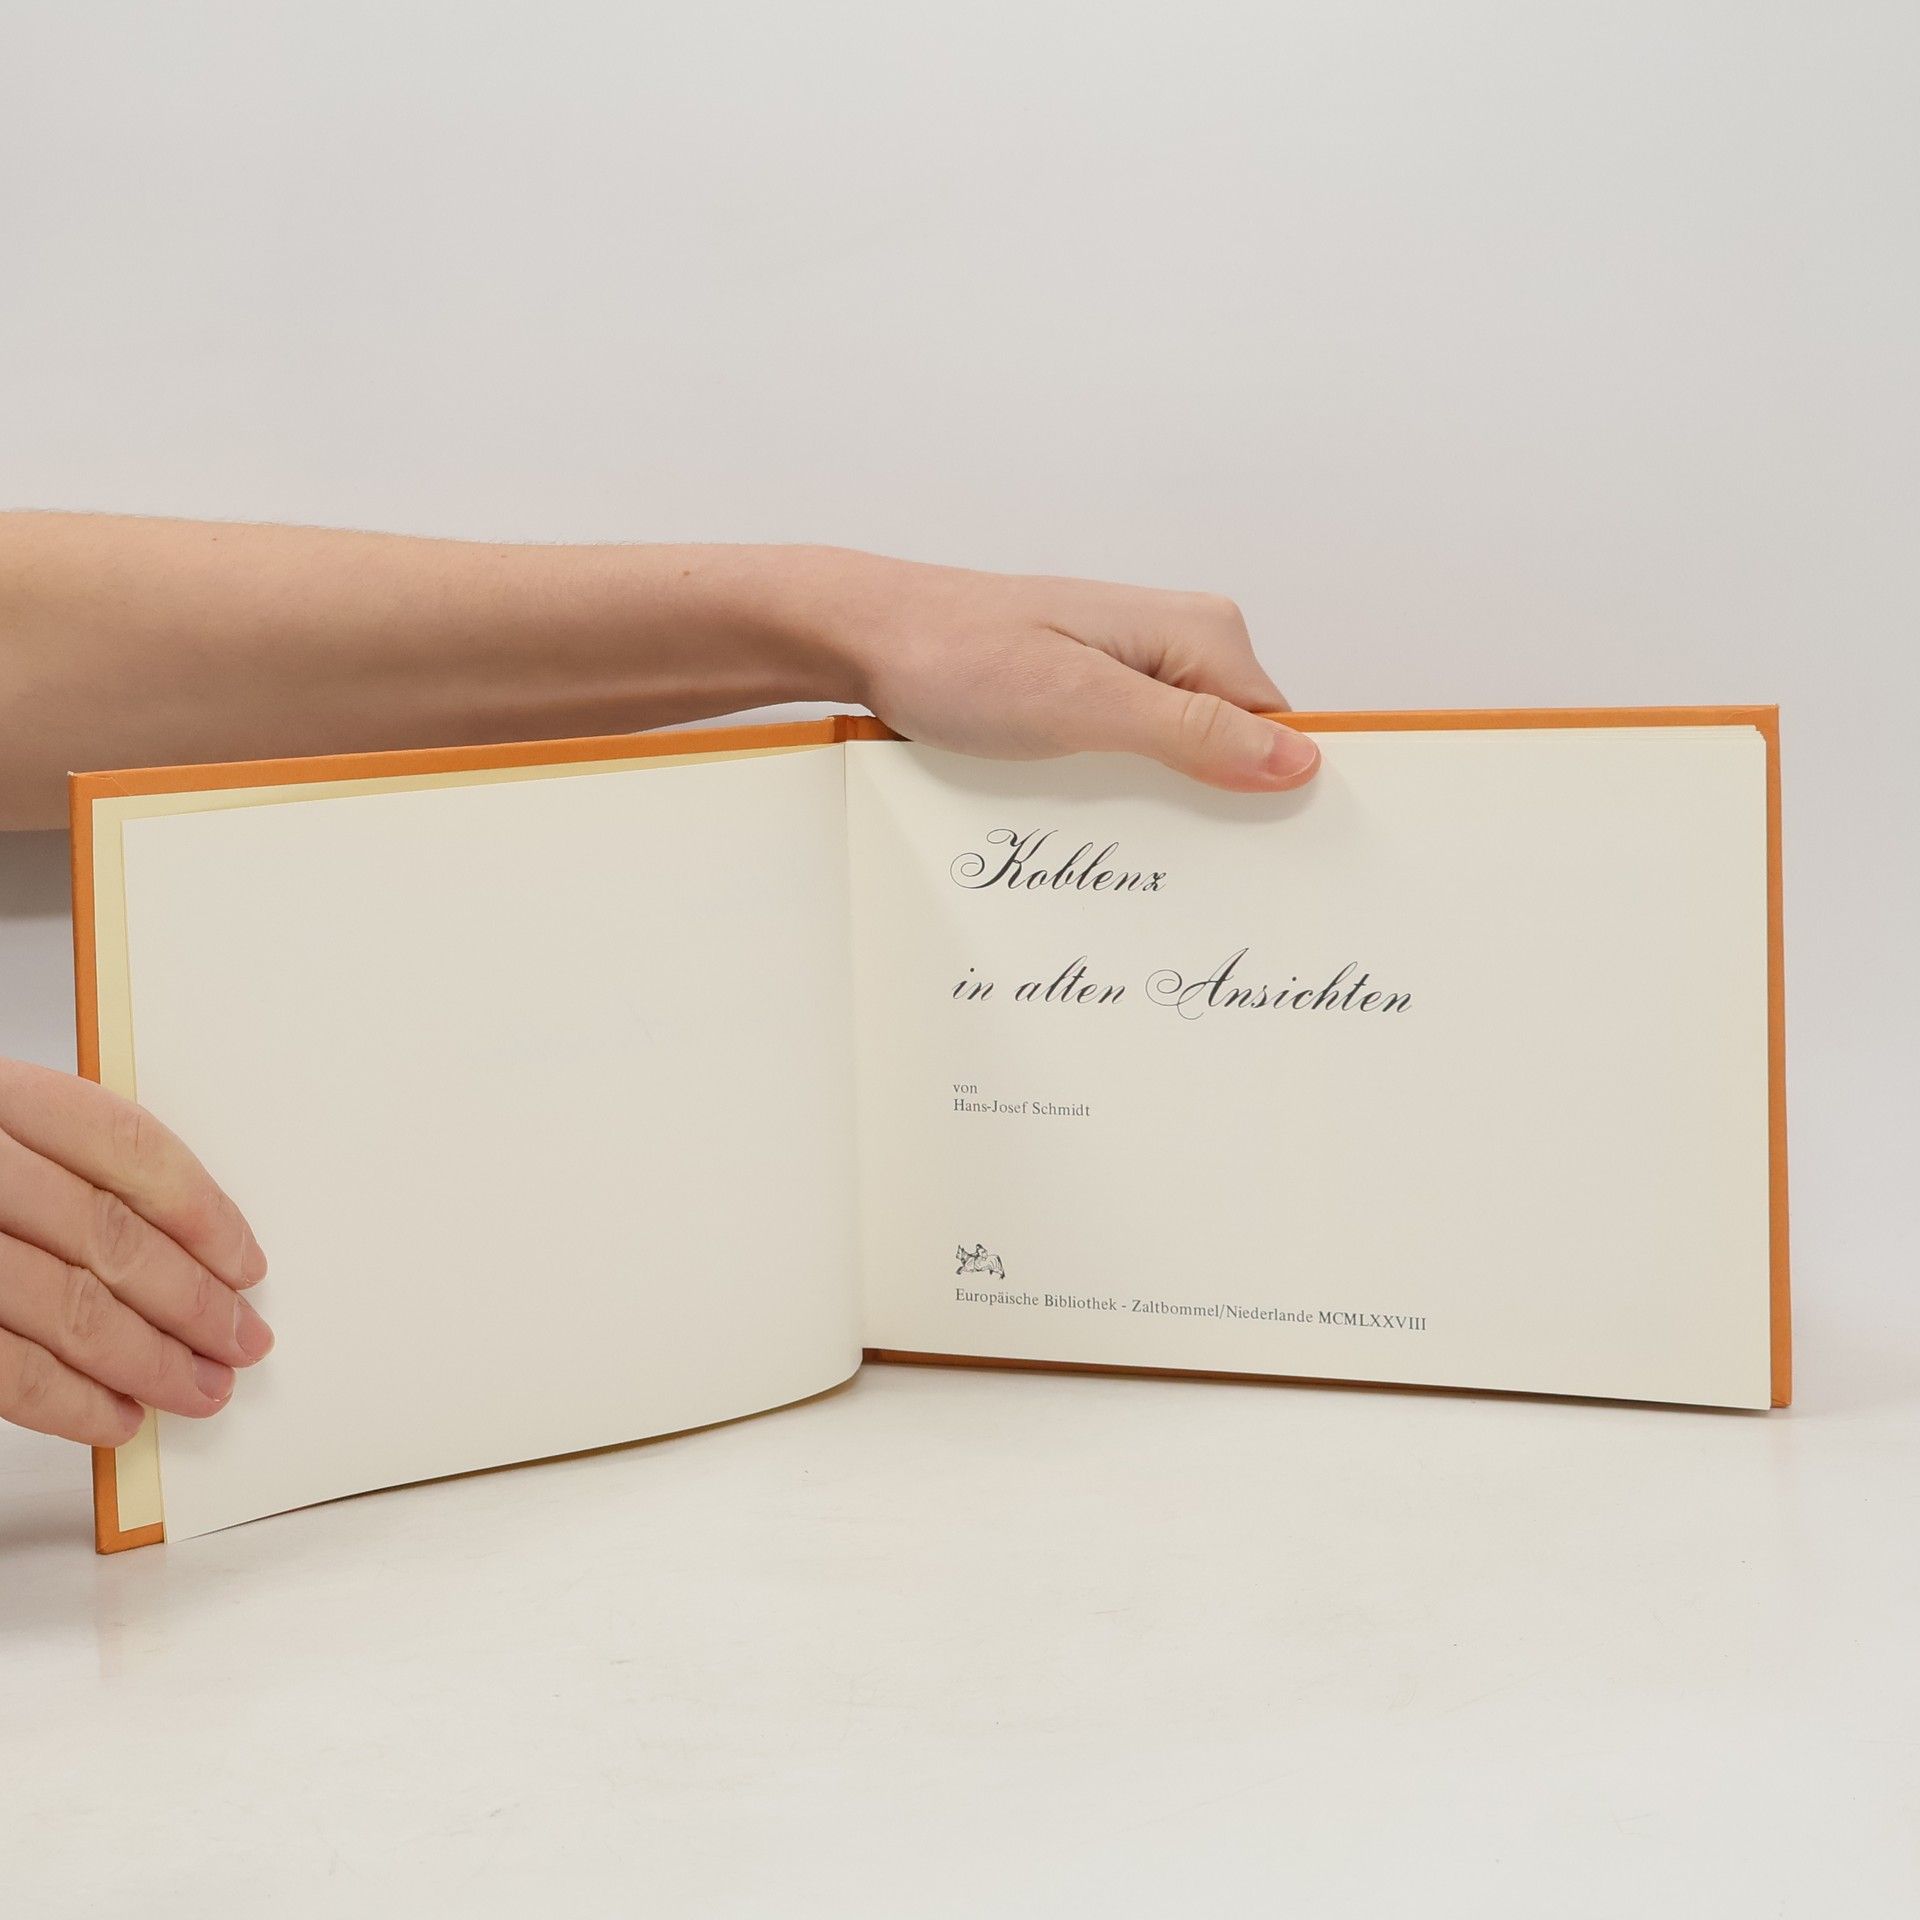 Koblenz
in alten Ansichten
von
Hans-Josef Schmidt
Europäische Bibliothek - Zaltbommel/Niederlande MCMLXXVIII